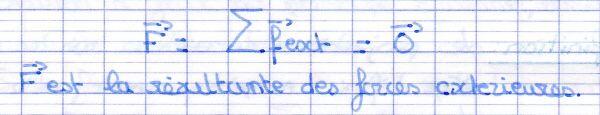 F⃗ = ∑ f⃗ext = 0⃗
F⃗ est la résultante des forces exterieures.